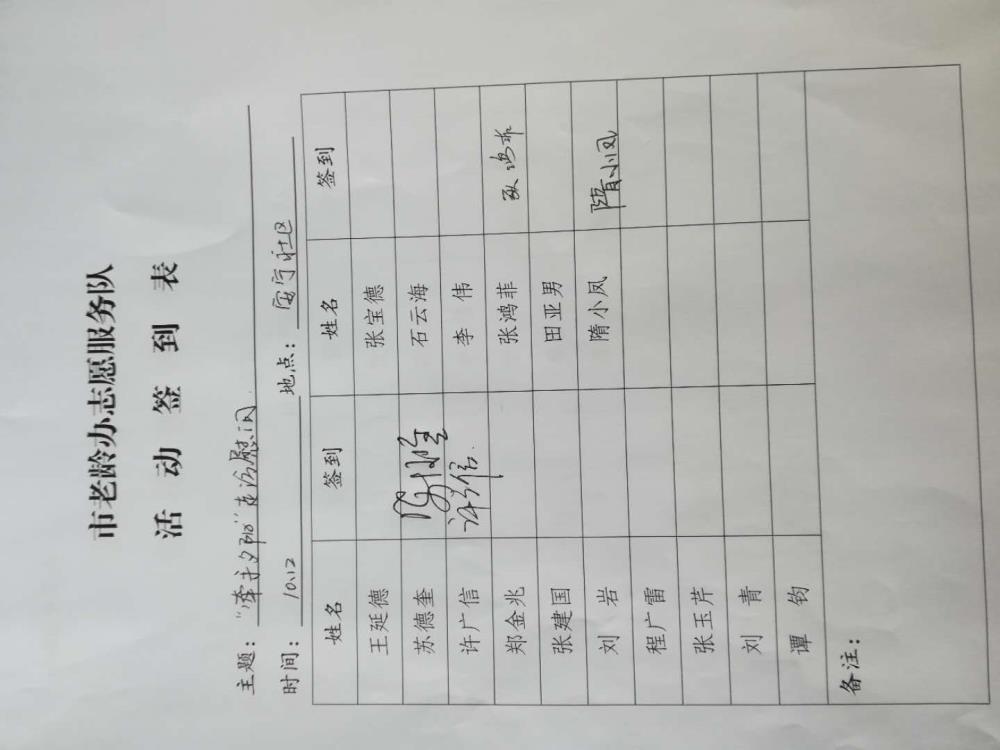 市老龄办志愿服务队
活动签到表
主题："牵手夕阳"走访慰问
时间：10.12 地点：富宁社区
姓名 签到 姓名 签到
王延德 张宝德
苏德奎 苏德奎 石云海
许广信 许广信 李伟
郑金兆 张鸿菲 张鸿菲
张建国 田亚男
刘岩 隋小凤 隋小凤
程广雷
张玉芹
刘青
谭钧
备注：